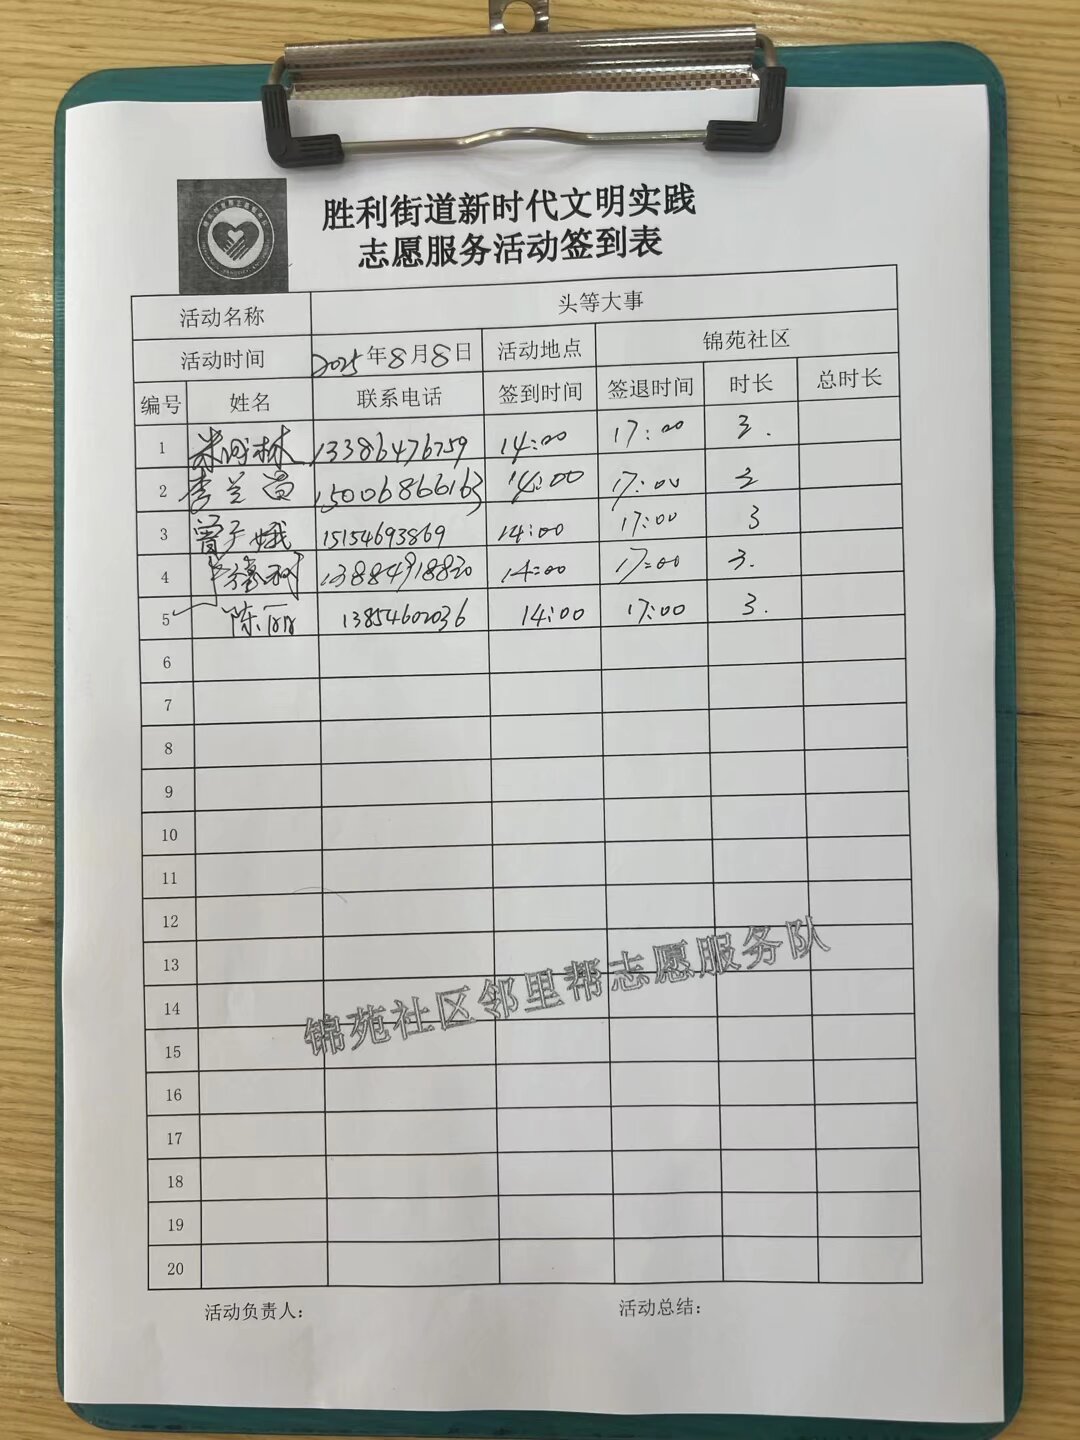 胜利街道新时代文明实践
志愿服务活动签到表
活动名称 头等大事
活动时间 2025年8月8日 活动地点 锦苑社区
编号 姓名 联系电话 签到时间 签退时间 时长 总时长
1 林 13386476759 14:00 17:00 3.
2 李兰昌 15006866163 14:00 17:00 3
3 曾子娥 15154693869 14:00 17:00 3
4 13884918820 14:00 17:00 3.
5 陈丽 13854602036 14:00 17:00 3.
6
7
8
9
10
11
12
13
锦苑社区邻里帮志愿服务队
14
15
16
17
18
19
20
活动负责人: 活动总结: